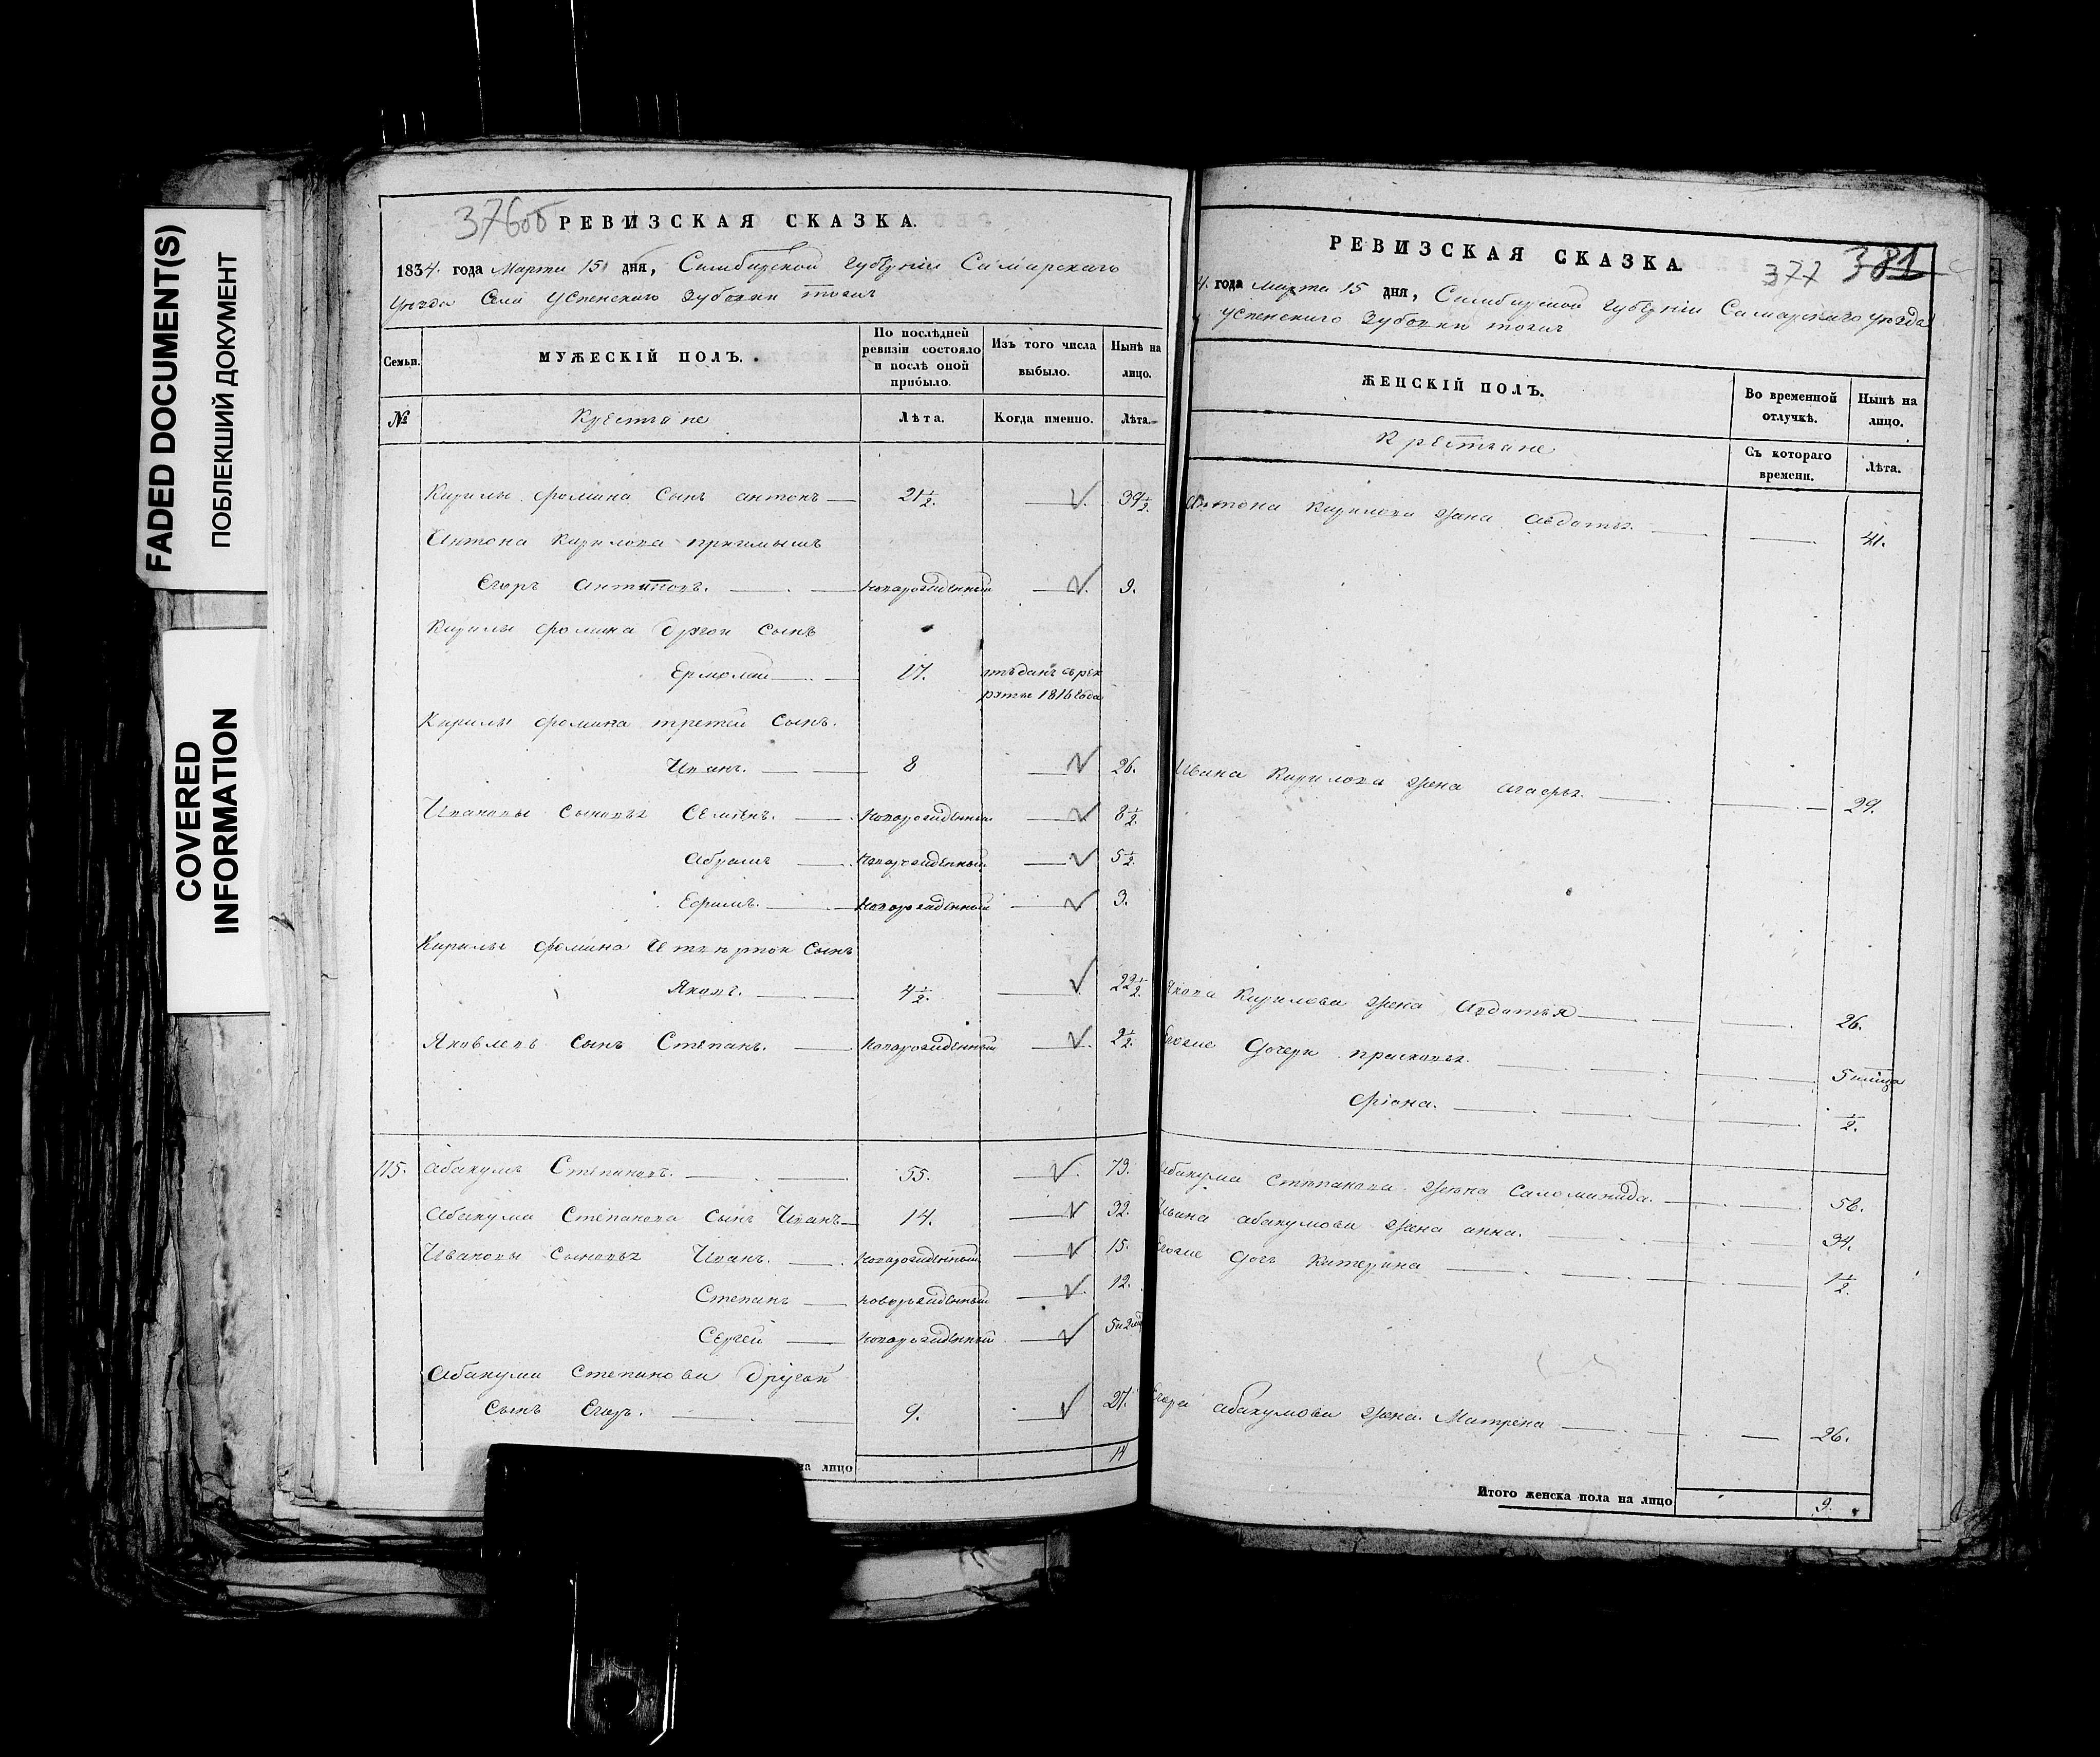 FADED DOCUMENT(S)
ПОБЛЕКШИЙ ДОКУМЕНТ
COVERED
INFORMATION
376об
РЕВИЗСКАЯ СКАЗКА.
1834. года Марта 15 дня, Симбирской губернiи Самарскаго
уезда Села Успенскаго Зубовки тожъ
Семьи.
МУЖЕСКIЙ ПОЛЪ.
По послѣдней ревизiи состояло и послѣ оной прибыло.
Изъ того числа выбыло.
Нынѣ на лицо.
№
Крестьяне
Лѣта.
Когда именно.
Лѣта.
Кирилы Фомина сынъ антонъ 21½. 39½.
Антона Кирилова приемышъ
Егоръ Антиповъ. новорожденный 9.
Кирилы Фомина другой сынъ
Ермолай 17. отъданъ въ рек
руты 1816 года
Кирилы Фомина третей сынъ.
Иванъ. 8 26.
Ивановы сыновья Семенъ. новорожденный 8½.
Абрамъ новорожденный 5½.
Ефимъ. новорожденный 3.
Кирилы Фомина Четвертой сынъ
Яковъ. 4½. 22½.
Яковлевъ сынъ Степанъ. новорожденный 2½.
115. Абакумъ Степановъ. 55. 73.
Абакума Степанова сынъ Иванъ 14. 32.
Ивановы сыновья Иванъ. новорожденный 15.
Степанъ новорожденный 12.
Сергей новорожденный
Абакума Степанова другой
сынъ Егоръ. 9. 27.
на лицо 14
РЕВИЗСКАЯ СКАЗКА.
377 381
4. года Марта 15 дня, Симбирской губернiи Самарскаго уезда
Успенскаго Зубовки тожъ
ЖЕНСКIЙ ПОЛЪ.
Во временной отлучкѣ.
Нынѣ на лицо.
Крестьяне
Съ котораго времени.
Лѣта.
Антона Кирилова жена Авдотья. 41.
Ивана Кирилова жена Агафья. 29.
Якова Кирилова жена Авдотья 26.
Егоже дочери прасковья. 5
½.
Абакума Степанова жена Саломанида. 56.
Ивана абакумова жена анна. 34.
Егоже дочь Катерина 1½
Егора абакумова жена Матрена 26.
Итого женска пола на лицо 9.